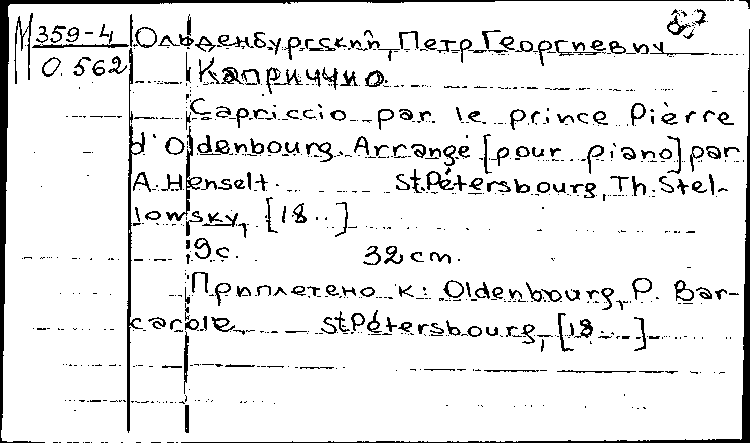 М 359-4 Ольденбургский, Петр Георгиевич
О. 562 Каприччио
Capriccio par le prince Pierre
d'Oldenbourg. Arrangé [pour piano] par
A. Henselt. St.Pétersbourg, Th. Stel-
lowsky, [18..]
9с. 32 cm.
Приплетено к: Oldenbourg, P. Bar-
carole. St.Pétersbourg, [18...]